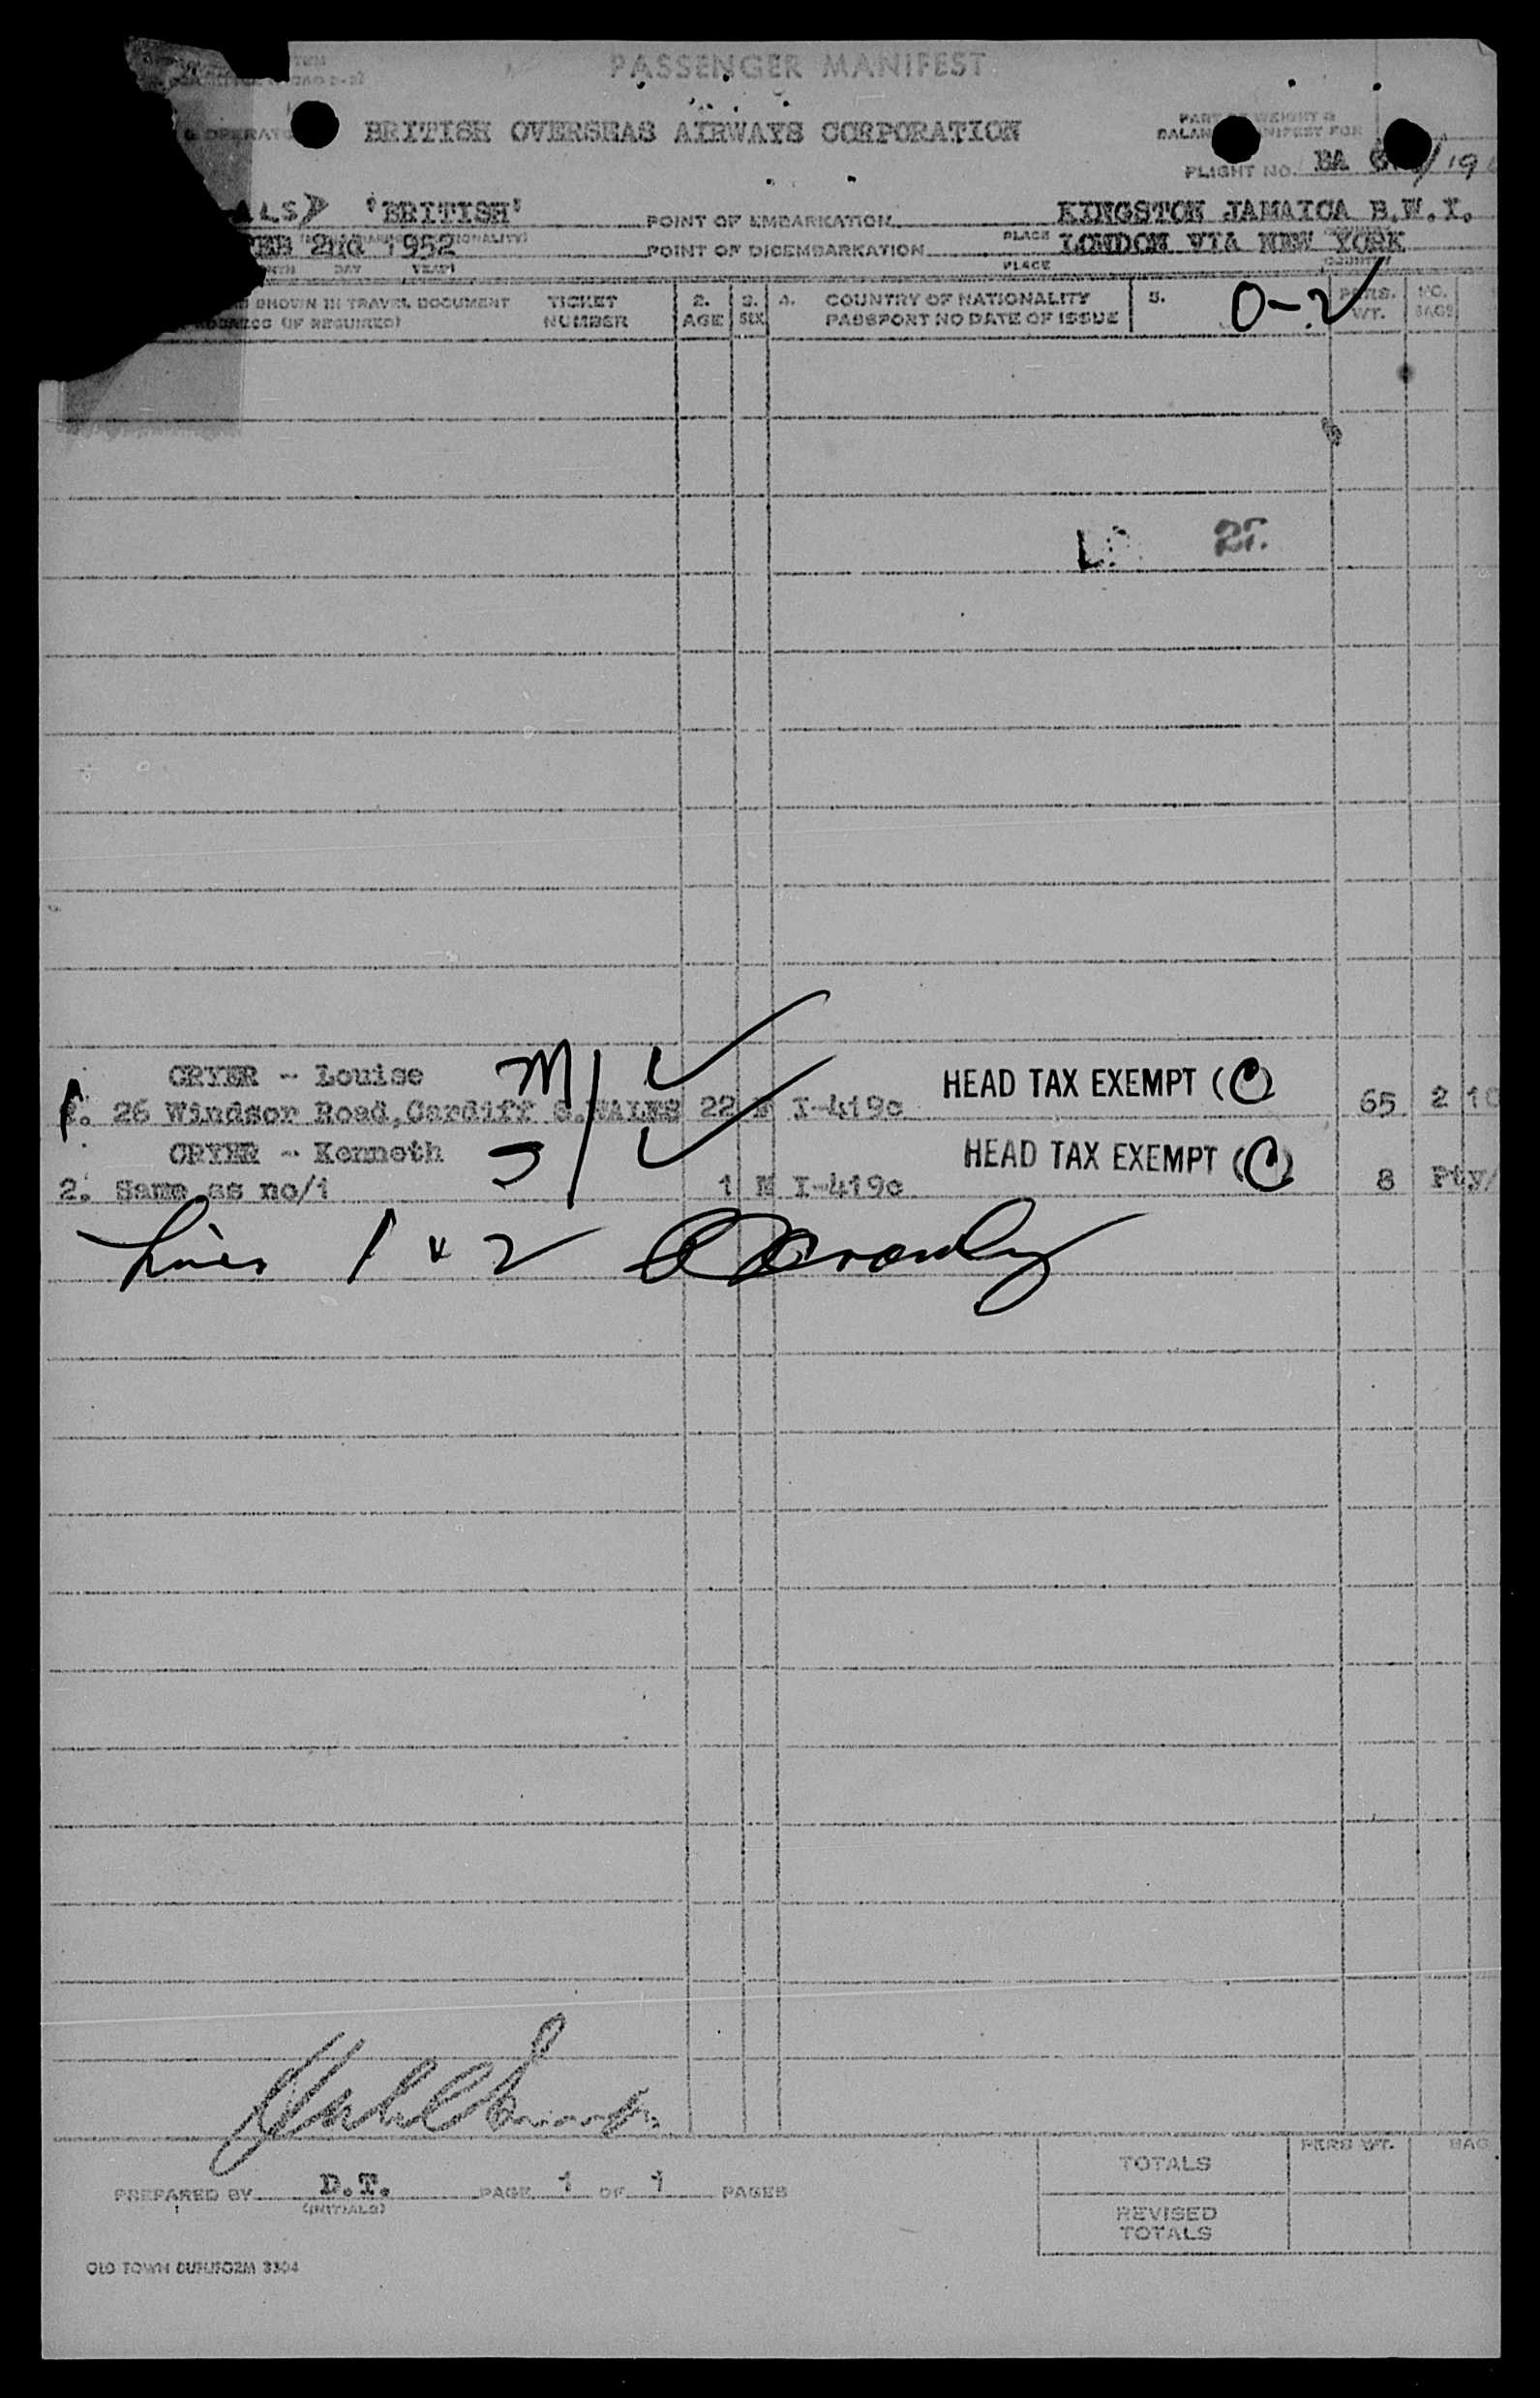 PASSENGER MANIFEST
BRITISH OVERSEAS AIRWAYS CORPORATION
PART WEIGHT &
FOR
FLIGHT NO. BA
ALS) "BRITISH" POINT OF EMBARKATION KINGSTON JAMAICA B.W.I.
PLACE
FEB 2nd 1952 POINT OF DISEMBARKATION LONDON VIA NEW YORK
DAY YEAR) PLACE COUNTRY
SHOWN IN TRAVEL DOCUMENT TICKET 2. 3. 4. COUNTRY OF NATIONALITY 5. 0-2 PERS. NO.
ADDRESS (IF REQUIRED) NUMBER AGE SEX PASSPORT NO DATE OF ISSUE WT. BAGS
CRYER - Louise M/ HEAD TAX EXEMPT (C)
1. 26 Windsor Road, Cardiff S.WALES 22 I-419c 65 2
CRYER - Kenneth S/ HEAD TAX EXEMPT (C)
2. Same as no/1 1 M I-419c 8 Pty/
Lines 1 & 2
PREPARED BY D.T. PAGE 1 OF 1 PAGES
(INITIALS)
PERS WT. BAG
TOTALS
REVISED
TOTALS
OLD TOWN 3304